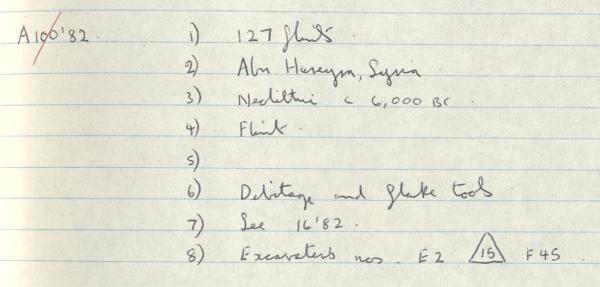 A100'82. 1) 127 flints.
2) Abu Hureyra, Syria.
3) Neolithic c 6,000 BC.
4) Flint.
5)
6) Debitage and flake tools
7) See 16'82.
8) Excavators nos. E2 15 F45